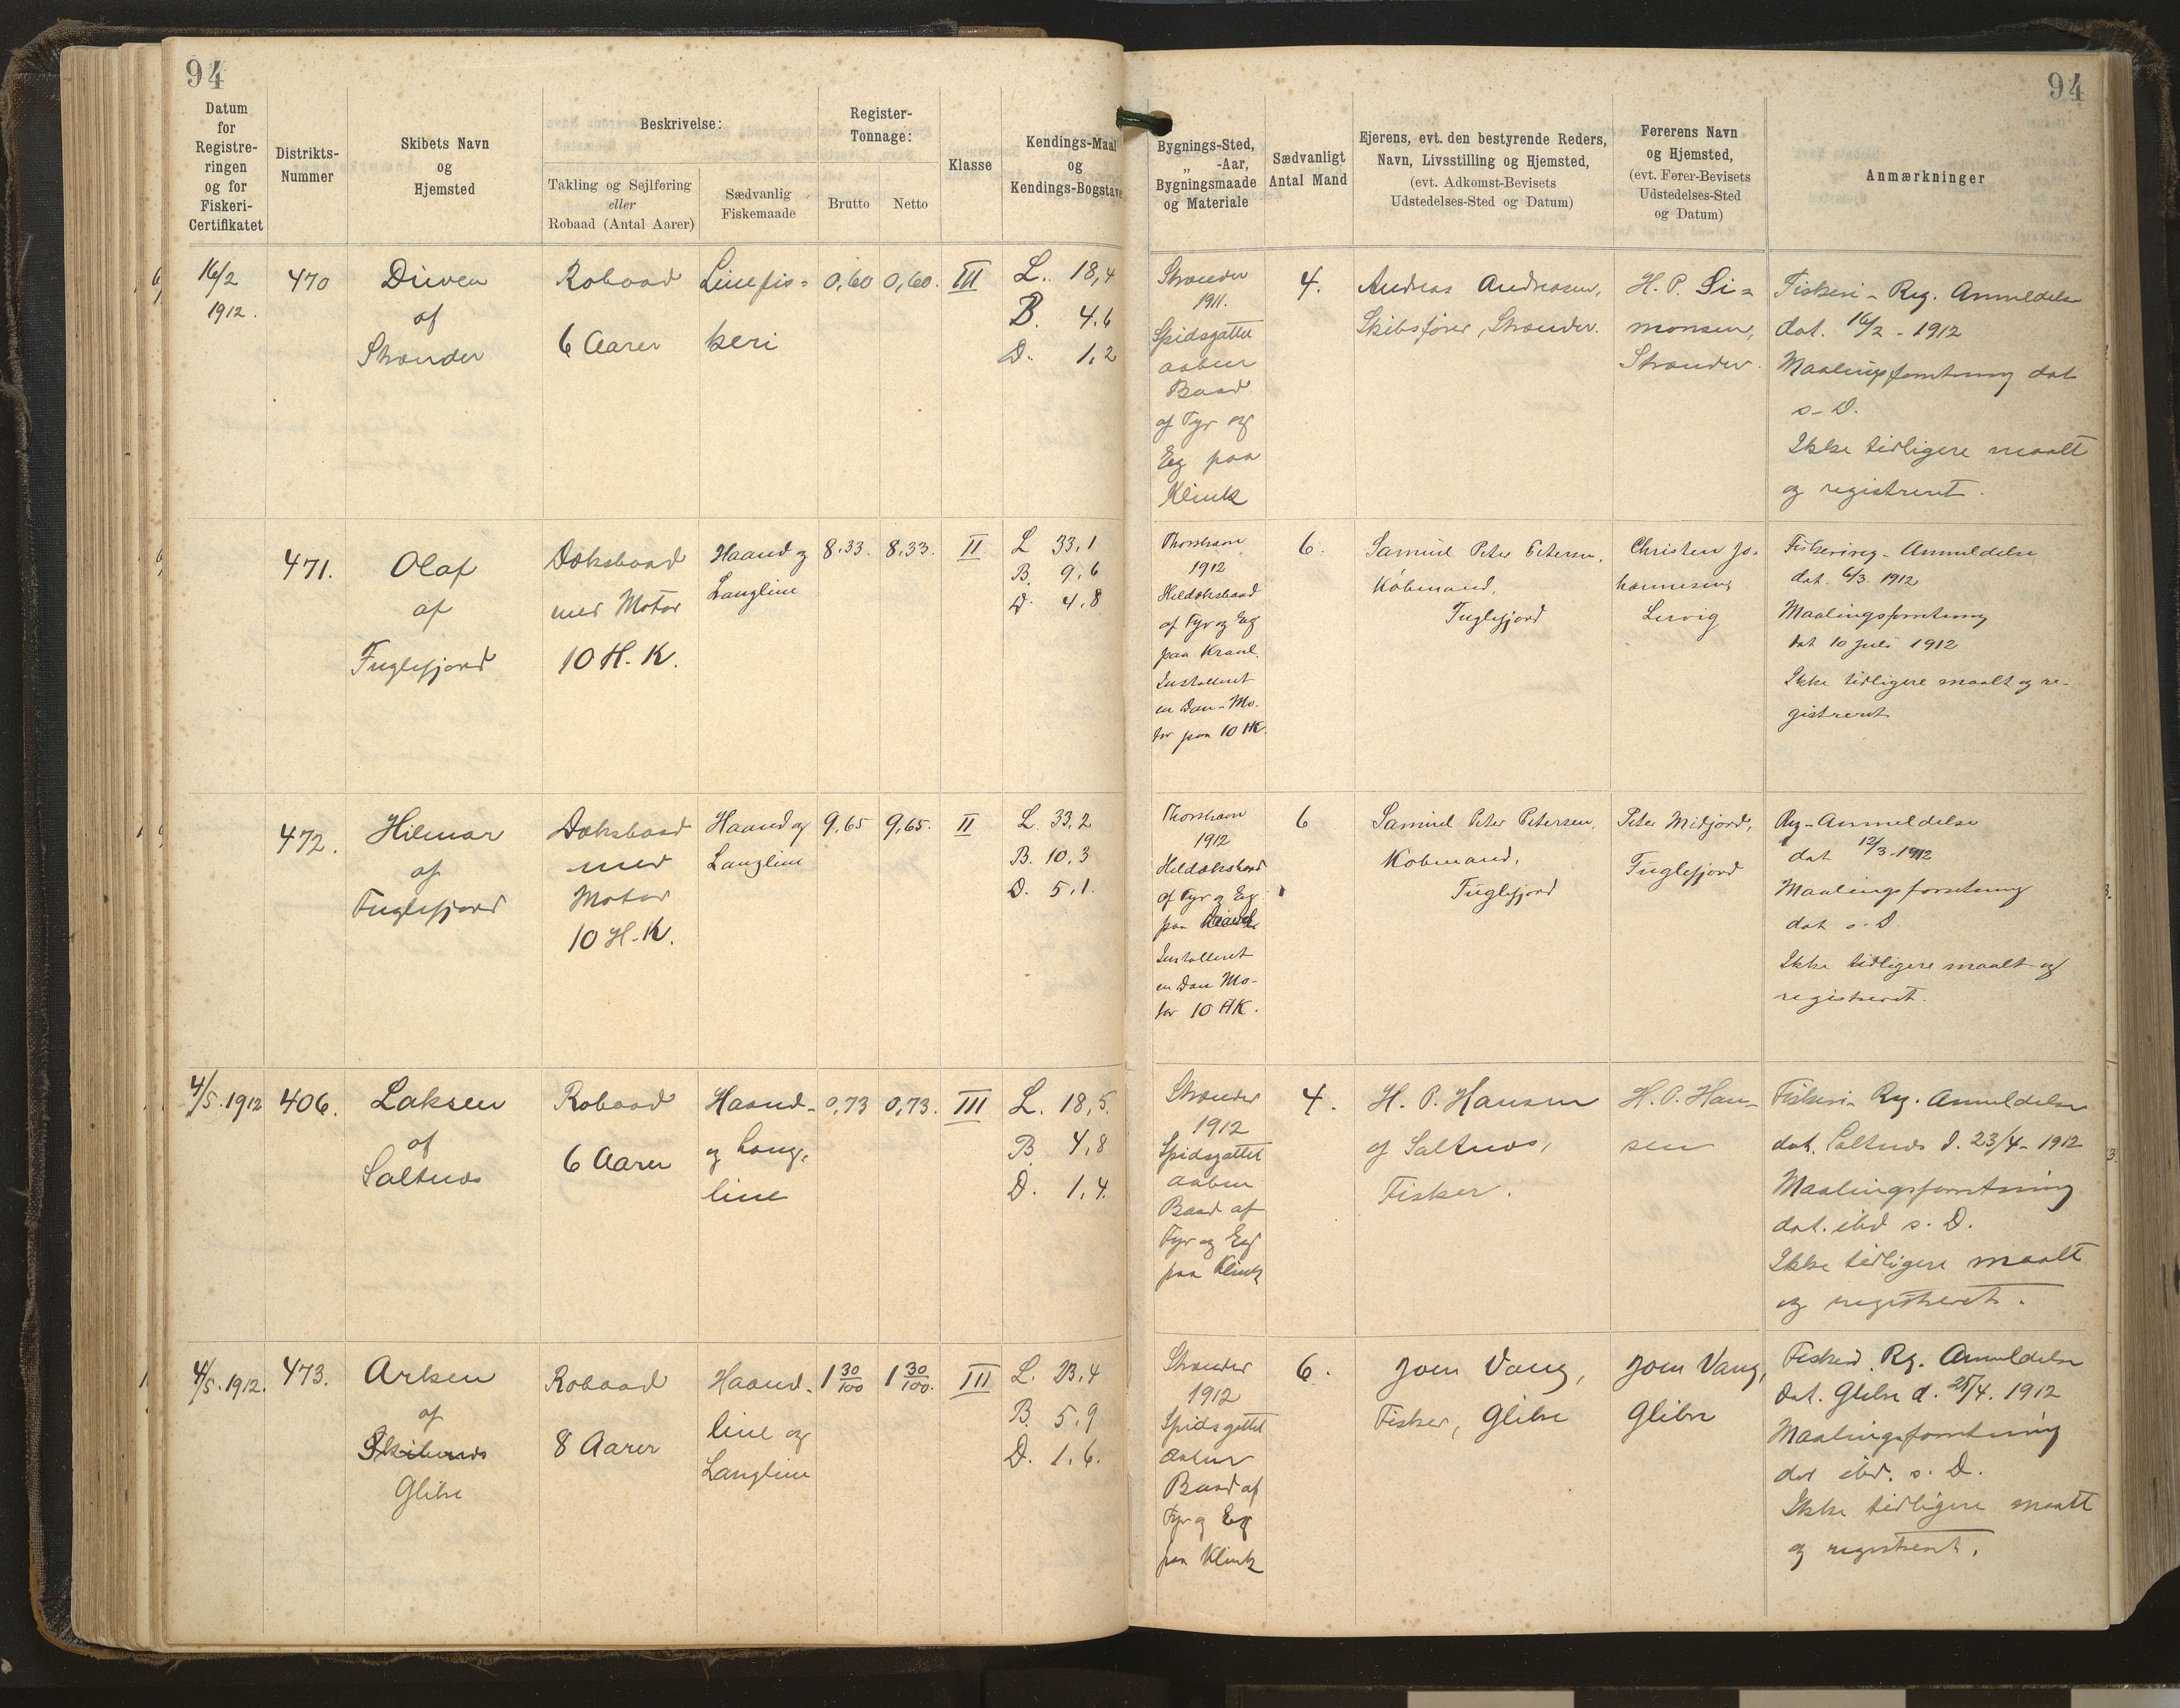 94
94
Datum
for
Registre-
ringen
og for
Fiskeri-
Certifikatet
Distrikts-
Nummer
Skibets Navn
og
Hjemsted
Beskrivelse:
Takling og Sejlføring
eller
Robaad (Antal Aarer)
Sædvanlig
Fiskemaade
Register-
Tonnage:
Brutto
Netto
Klasse
Kendings-Maal
og
Kendings-Bogstave
Bygnings-Sted,
„ -Aar,
Bygningsmaade
og Materiale
Sædvanligt
Antal Mand
Ejerens, evt. den bestyrende Reders,
Navn, Livsstilling og Hjemsted,
(evt. Adkomst-Bevisets
Udstedelses-Sted og Datum)
Førerens Navn
og Hjemsted,
(evt. Fører-Bevisets
Udstedelses-Sted
og Datum)
Anmærkninger
16/2
1912.
470
Duven
af
Strænder
Robaad
6 Aarer
Linefis=
keri
0,60
0,60.
III
L. 18,4
B. 4,6
D. 1,2
Strænder
1911.
Spidsgattet
aaben
Baad
af Fyr og
Eeg paa
Klink
4.
Andreas Andreasen,
Skibsfører, Strænder.
H. P. Si=
monsen,
Strænder.
Fiskeri-Reg. Anmeldelse
dat. 16/2 - 1912
Maalingsforretning dat
s. D.
Ikke tidligere maalt
og registreret.
471.
Olaf
af
Fuglefjord
Dæksbaad
med Motor
10 H.K.
Haand og
Langline
8,33.
8,33.
II
L 33,1
B. 9,6
D. 4,8
Thorshavn
1912
Heldæksbaad
af Fyr og Eeg
paa Kravel.
Installeret
en Dan-Mo-
tor paa 10 HK.
6.
Samuel Peter Petersen,
Købmand,
Fuglefjord
Christen Jo-
hannesen,
Lervig
Fiskerireg- Anmeldelse
dat. 6/3 1912
Maalingsforretning
dat 10 Juli 1912
Ikke tidligere maalt og re-
gistreret
472.
Hilmar
af
Fuglefjord
Dæksbaad
med
Motor
10 H.K.
Haand og
Langline
9,65
9,65.
II
L. 33,2
B. 10,3
D. 5,1.
Thorshavn
1912
Heldæksbaad
af Fyr og Eeg
paa
Installeret
en Dan Mo-
tor 10 HK.
6
Samuel Peter Petersen,
Købmand,
Fuglefjord
Peter Midjord,
Fuglefjord
Reg-Anmeldelse
dat 12/3-1912
Maalingsforretning
dat s. D.
Ikke tidligere maalt og
registreret.
4/5.1912
406.
Laksen
af
Saltnæs
Robaad
6 Aarer
Haand-
og Lang=
line
0,73
0,73.
III
L. 18,5.
B. 4,8
D. 1,4.
Strænder
1912
Spidsgattet
aaben
Baad af
Fyr og Eeg
paa Klink
4.
H. P. Hansen
af Saltnæs,
Fisker.
H. P. Han-
sen
Fiskeri-Reg. Anmeldelse
dat. Saltnæs d. 23/4-1912
Maalingsforretning
dat. ibd s. D.
Ikke tidligere maalt
og registreret.
4/5.1912.
473.
Arken
af
Glibre
Robaad
8 Aarer
Haand-
line og
Langline
1 30/100
1 30/100.
III
L. 23,4
B. 5,9
D. 1,6.
Strænder
1912
Spidsgattet
aaben
Baad af
Fyr og Eeg
paa Klink
6.
Joen Vang,
Fisker, Glibre
Joen Vang,
Glibre
Fiskeri. Rg. Anmeldelse
Dat. Glibre d. 25/4. 1912
Maalingsforretning
dat ibd. s. D.
Ikke tidligere maalt
og registreret.